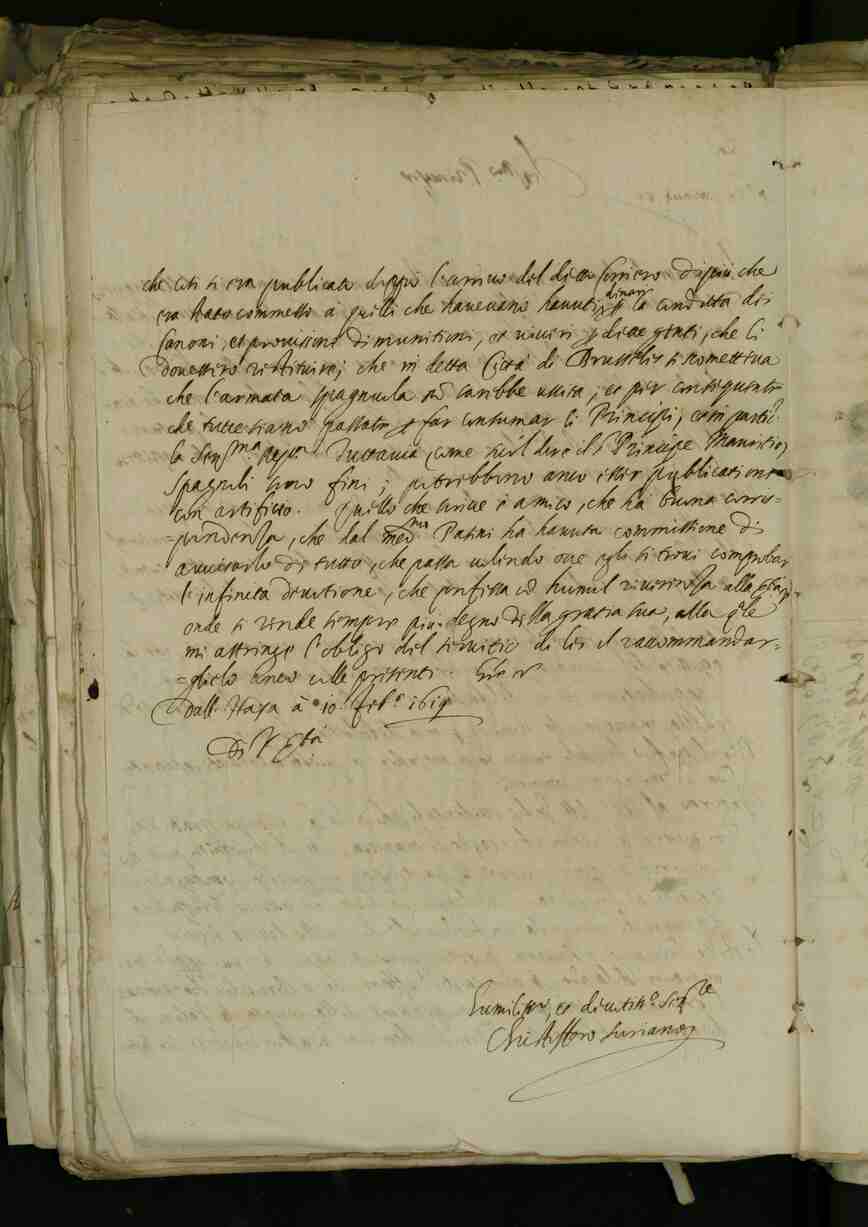 che così si era publicato doppo l'arrivo del ditto Corriero. Di più che
era stato commesso à quelli che havevano havuti dinari per la condotta dei
Canoni, et provisioni di munitioni, et viveri per dette genti, che li
dovessero restituire; che in detta Città di Brusseles si scometteva
che l'armata spagnuola non sarebbe uscita, et per consequente
che tutte erano passate per far consumar li Principi, et in partic.re
la Ser.ma Rep.ca Tuttavia, come suol dire il S.r Principe Mauritio,
Spagnoli hano fini; potrebbero anco esser publicationi
con artificio. Quello che scrive è amico, che ha buona corris=
=pondenza, che dal med.mo Pasini ha havuta commissione di
avvisarlo di tutto, che passa volendo ove egli si trovi comprobar
l'infinita devotione, che professa con humil riverenza alla
onde si rende sempre più degno della gratia sua, alla q.le
mi astringe l'obligo del servitio di lei il raccommandar=
=glielo anco colle presenti. Gratie
Dall'Haya à 10. Feb.o 1619
Di V. Ser.tà
Humiliss.o, et devotiss.o Ser.re
Christofforo Suriano